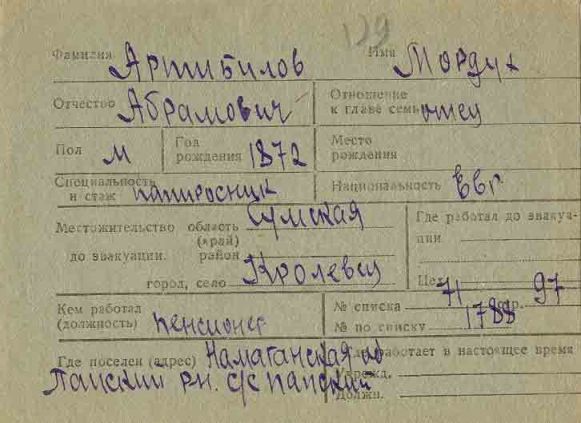 129
Фамилия Артибилов Имя Мордух
Отчество Абрамович Отношение к главе семьи отец
Пол м Год рождения 1872 Место рождения
Специальность и стаж папиросник Национальность евр
Местожительство область (край) Сумская Где работал до эвакуации
до эвакуации. район
город, село Кролевец Цех
71 стр. 97
Кем работал (должность) пенсионер № списка
№ по списку 1788
Где поселен (адрес) Наманганская об Где работает в настоящее время
Папский рн. с/с папский Учрежд.
Должн.